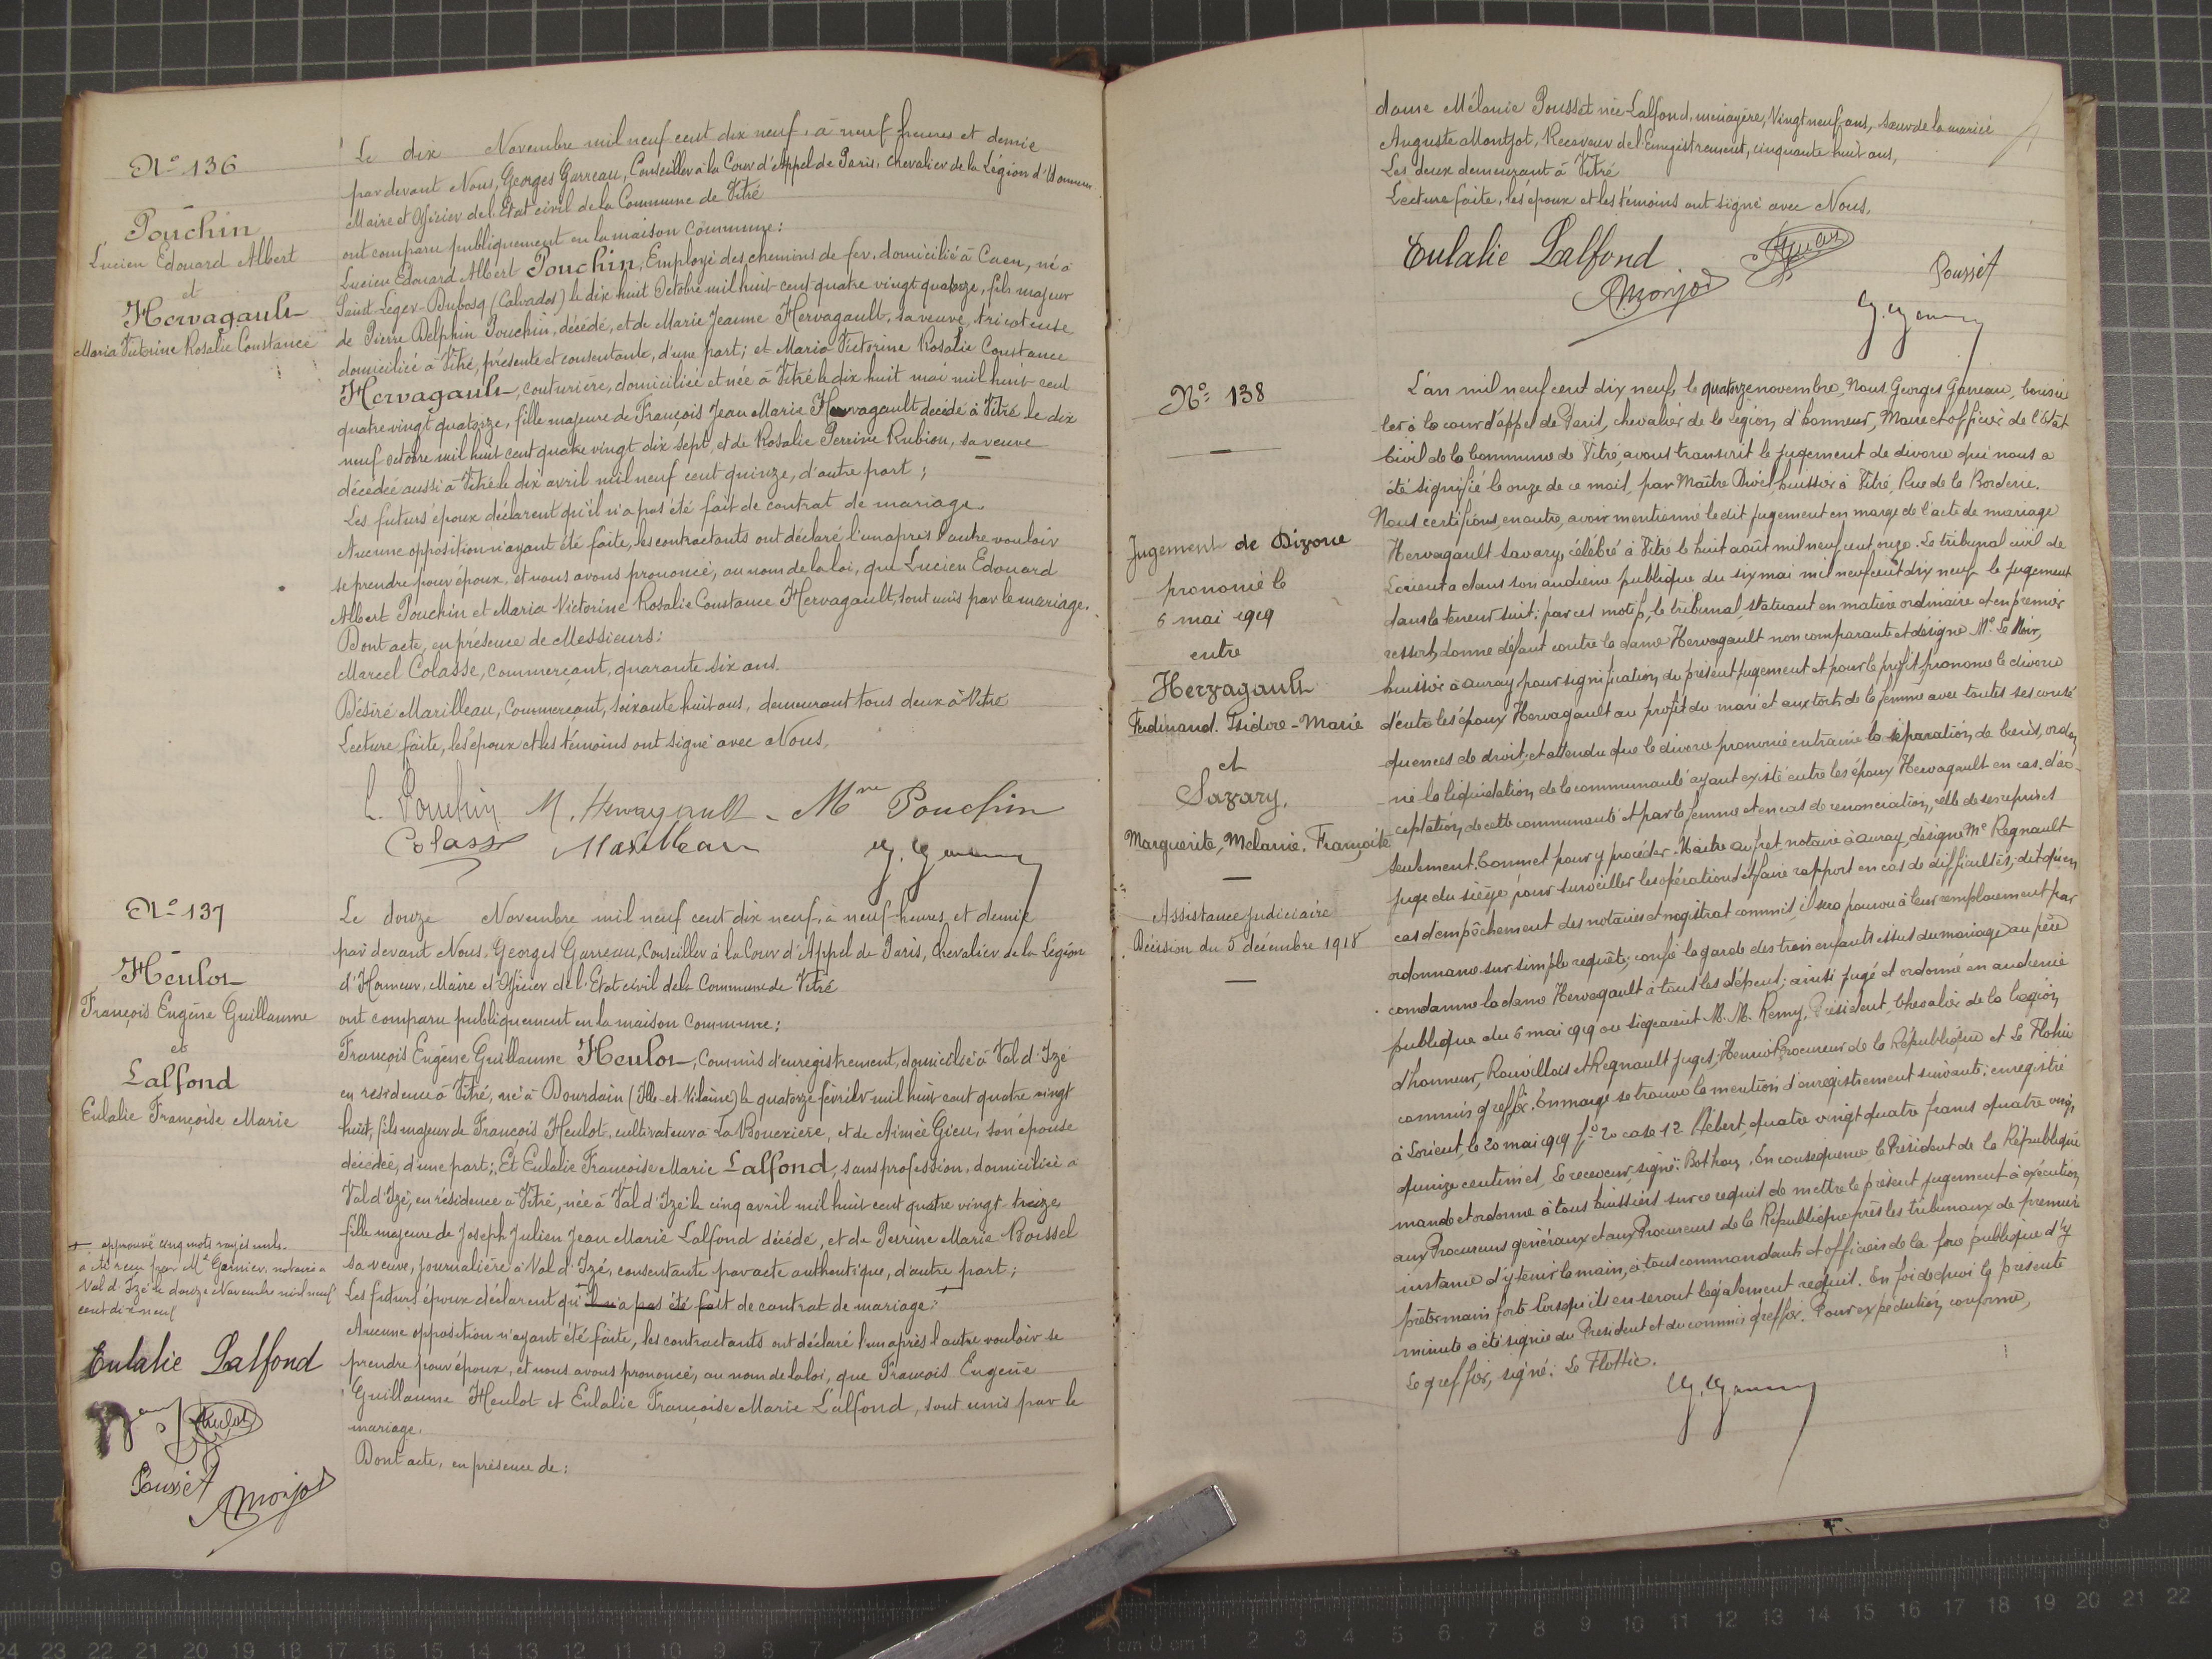 N° 136
Pouchin
Lucien Edouard Albert
et
Hervagault
Maria Victorine Rosalie Constance
Le dix Novembre mil neuf cent dix neuf, à neuf heures et demie
par devant Nous, Georges Garreau, Conseiller à la Cour d'Appel de Paris, Chevalier de la Légion d'Honneur
Maire et Officier de l'Etat civil de la Commune de Vitré
ont comparu publiquement en la maison commune:
Lucien Edouard Albert Pouchin, Employé des chemins de fer, domicilié à Caen, né à
Saint-Léger-Dubosq (Calvados) le dix huit Octobre mil huit cent quatre vingt quatorze, fils majeur
de Pierre Delphin Pouchin, décédé, et de Marie Jeanne Hervagault, sa veuve, tricoteuse
domiciliée à Vitré, présente et consentante, d'une part; et Maria Victorine Rosalie Constance
Hervagault, couturière, domiciliée et née à Vitré le dix huit mai mil huit cent
quatre vingt quatorze, fille majeure de François Jean Marie Hervagault décédé à Vitré le dix
neuf octobre mil huit cent quatre vingt dix sept, et de Rosalie Perrine Rubion, sa veuve
décédée aussi à Vitré le dix avril mil neuf cent quinze, d'autre part;
Les futurs époux déclarent qu'il n'a pas été fait de contrat de mariage.
Aucune opposition n'ayant été faite, les contractants ont déclaré l'un après l'autre vouloir
se prendre pour époux, et nous avons prononcé, au nom de la loi, que Lucien Edouard
Albert Pouchin et Maria Victorine Rosalie Constance Hervagault, sont unis par le mariage.
Dont acte, en présence de Messieurs:
Marcel Colasse, Commerçant, quarante six ans.
Désiré Marilleau, Commerçant, soixante huit ans, demeurant tous deux à Vitré
Lecture faite, les époux et les témoins ont signé avec Nous,
L. Pouchin M. Hervagault Mme Pouchin
Colasse Marilleau
N° 137
Heulot
François Eugène Guillaume
et
Lalfond
Eulalie Françoise Marie
Le douze Novembre mil neuf cent dix neuf, à neuf heures et demie
par devant Nous, Georges Garreau, Conseiller à la Cour d'Appel de Paris, Chevalier de la Légion
d'Honneur, Maire et Officier de l'Etat civil de la Commune de Vitré
ont comparu publiquement en la maison commune:
François Eugène Guillaume Heulot, Commis d'enregistrement, domicilié à Val d'Izé
en résidence à Vitré, né à Dourdain (Ille-et-Vilaine) le quatorze février mil huit cent quatre vingt
huit, fils majeur de François Heulot, cultivateur à La Bouexière, et de Aimée Gieu, son épouse
décédée, d'une part; Et Eulalie Françoise Marie Lalfond, sans profession, domiciliée à
Val d'Izé, en résidence à Vitré, née à Val d'Izé le cinq avril mil huit cent quatre vingt treize
fille majeure de Joseph Julien Jean Marie Lalfond décédé, et de Perrine Marie Boissel
sa veuve, journalière à Val d'Izé, consentante par acte authentique, d'autre part;
Les futurs époux déclarent qu'il n'a pas été fait de contrat de mariage.
Aucune opposition n'ayant été faite, les contractants ont déclaré l'un après l'autre vouloir se
prendre pour époux, et nous avons prononcé, au nom de la loi, que François Eugène
Guillaume Heulot et Eulalie Françoise Marie Lalfond, sont unis par le
mariage.
Dont acte, en présence de:
approuvé cinq mots rayés nuls.
a été reçu par Me Garnier, notaire à
Val d'Izé le douze Novembre mil neuf
cent dix neuf
Eulalie Lalfond
Heulot
Pousset
AMonjot
dame Mélanie Pousset née Lalfond, ménagère, Vingt neuf ans, sœur de la mariée
Auguste Montjot, Receveur de l'Enregistrement, cinquante huit ans,
Les deux demeurant à Vitré
Lecture faite, les époux et les témoins ont signé avec Nous,
Eulalie Lalfond Heulot Pousset
AMonjot
N° 138
Jugement de Divorce
prononcé le
6 mai 1919
entre
Hervagault
Ferdinand. Isidore-Marie
et
Savary,
Marguerite, Mélanie, Françoise
Assistance judiciaire
Décision du 5 décembre 1918
L'an mil neuf cent dix neuf, le quatorze novembre, Nous Georges Garreau, Conseil
ler à la cour d'appel de Paris, chevalier de la légion d'honneur, Maire et officier de l'état
Civil de la Commune de Vitré, avons transcrit le jugement de divorce qui nous a
été signifié le onze de ce mois, par Maître Divel, huissier à Vitré, Rue de la Borderie.
Nous certifions, en outre, avoir mentionné le dit jugement en marge de l'acte de mariage
Hervagault Savary, célébré à Vitré le huit août mil neuf cent onze. Le tribunal civil de
Lorient a dans son audience publique du six mai mil neuf cent dix neuf le jugement
dans la teneur suit: par ces motifs, le tribunal, statuant en matière ordinaire et en premier
ressort, donne défaut contre la dame Hervagault non comparante et désigne Me Le Noir,
huissier à Auray pour signification du présent jugement et pour le profit prononce le divorce
d'entre les époux Hervagault au profit du mari et aux torts de la femme avec toutes ses consé
quences de droit; et attendu que le divorce prononcé entraîne la séparation de biens, ordon
-ne la liquidation de la communauté ayant existé entre les époux Hervagault en cas d'ac-
ceptation de cette communauté et par la femme et en cas de renonciation, celle de ses reprises
seulement. Commet pour y procéder Maître Aufret notaire à Auray, désigne Me Regnault
juge du siège pour surveiller les opérations et faire rapport en cas de difficultés; dit qu'en
cas d'empêchement des notaires et magistrat commis, il sera pourvu à leur remplacement par
ordonnance sur simple requête; confie la garde des trois enfants issus du mariage au père
condamne la dame Hervagault à tous les dépens; ainsi jugé et ordonné en audience
publique du 6 mai 1919 où siégeaient M.M. Remy, Président, Chevalier de la Légion
d'honneur, Rouvillois et Regnault juges, Henriot Procureur de la République et Le Flohic
commis greffier. En marge se trouve la mention d'enregistrement suivante: enregistré
à Lorient, le 20 mai 1919 f° 20 case 12 Débert, quatre vingt quatre francs quatre vingt
quinze centimes, Le receveur, signé: Bothorz. En conséquence, le Président de la République
mande et ordonne à tous huissiers sur ce requis de mettre le présent jugement à exécution
aux Procureurs généraux et aux Procureurs de la République près les tribunaux de première
instance d'y tenir la main, à tous commandants et officiers de la force publique d'y
prêter main forte lorsqu'ils en seront légalement requis. En foi de quoi la présente
minute a été signée du Président et du commis greffier. Pour expédition conforme,
Le greffier, signé: Le Flohic.